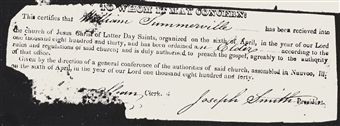 TO WHOM IT MAY CONCERN:
This certifies that William Summerville has been recieved into
the church of Jesus Christ of Latter Day Saints, organized on the sixth of April, in the year of our Lord
one thousand eight hundred and thirty, and has been ordained an Elder
rules and regulations of said church; and is duly authorized to preach the gospel, agreeably to the authority
of that office.
Given by the direction of a general conference of the authorities of said church, assembled in Nauvoo, Ill;
on the sixth of April, in the year of our Lord one thousand eight hundred and forty.
Clerk. Joseph Smith President.